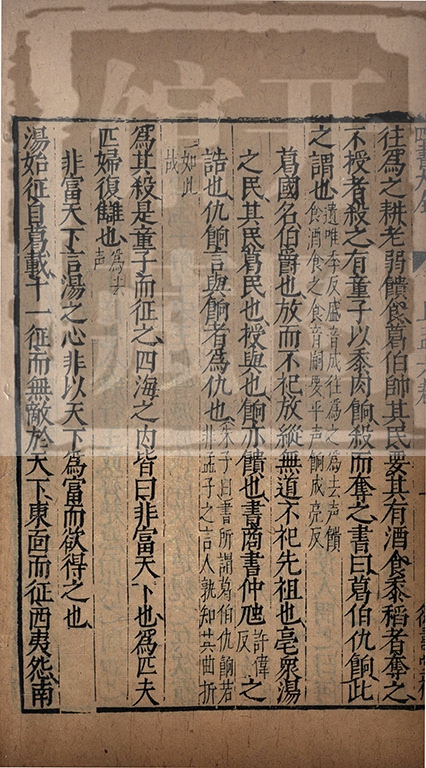 往爲之耕老弱饋食葛伯帥其民要其有酒食黍稻者奪之
不授者殺之有童子以黍肉餉殺而奪之書曰葛伯仇餉此
之謂也遺唯季反盛音成往爲之爲去声饋食酒食之食音嗣要平声餉式亮反
葛國名伯爵也放而不祀放縱無道不祀先祖也亳衆湯
之民其民葛民也授與也餉亦饋也書商書仲虺許偉反之
誥也仇餉言與餉者爲仇也朱子曰書所謂葛伯仇餉若非孟子之言人孰知其曲折如此故
爲其殺是童子而征之四海之内皆曰非富天下也爲匹夫
匹婦復讎也爲去声
非富天下言湯之心非以天下爲富而欲得之也
湯始征自葛載十一征而無敵於天下東面而征西夷怨南